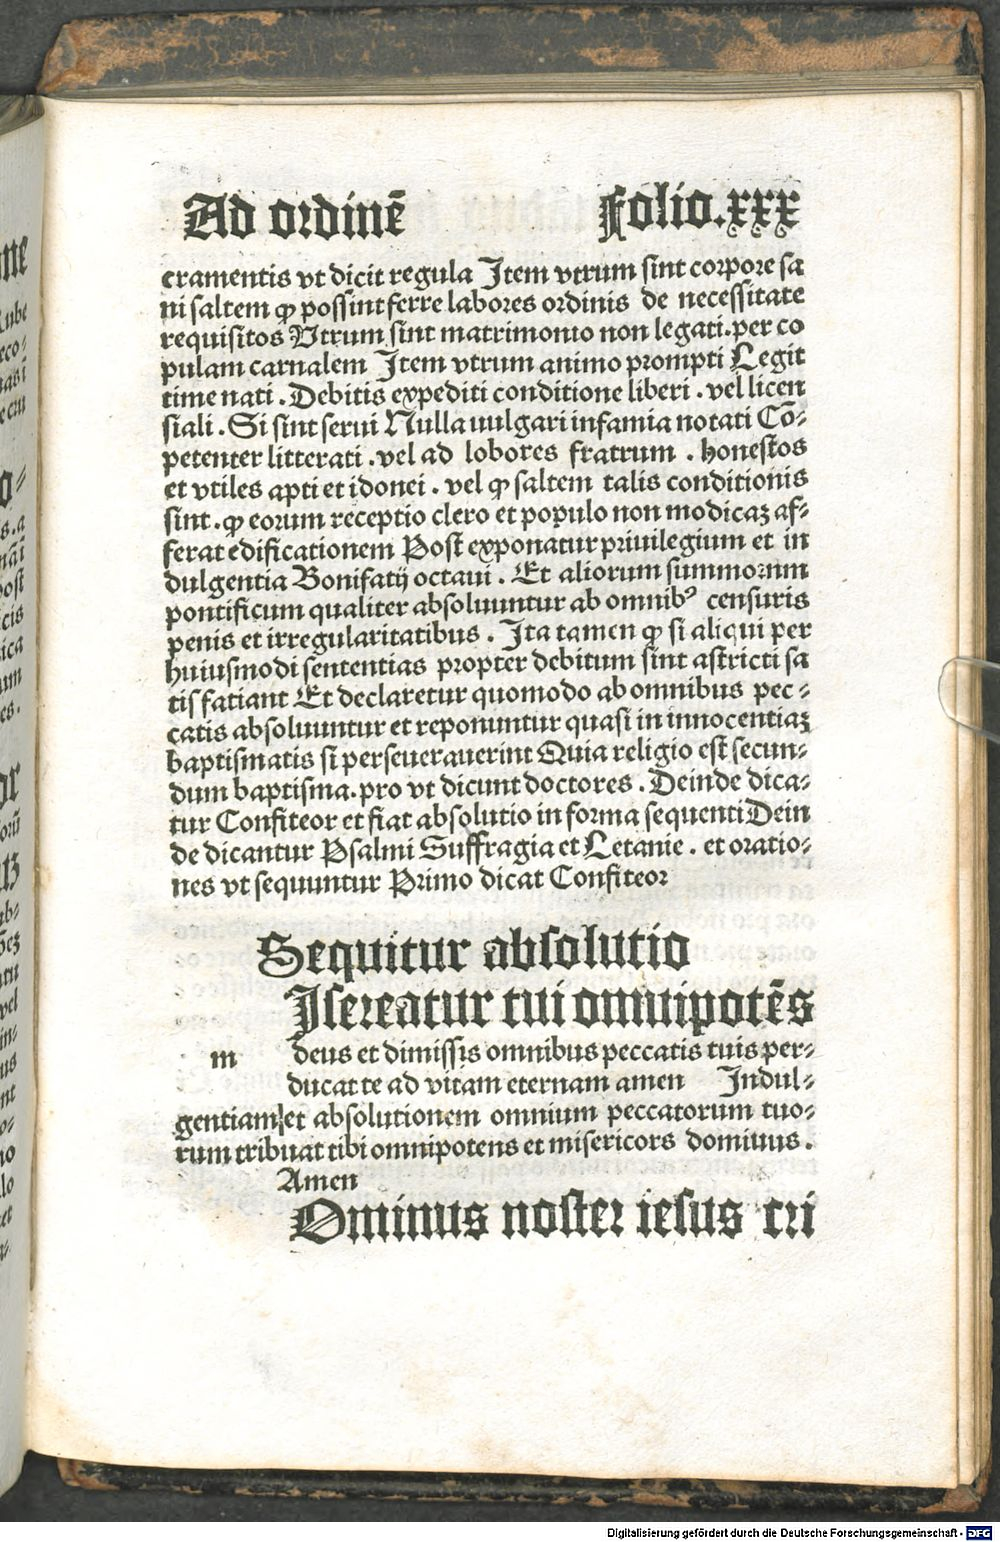 Ad ordinē Folio.xxx
cramentis vt dicit regula Item vtrum sint corpore sa
ni saltem ꝙ possint ferre labores ordinis de necessitate
requisitos Vtrum sint matrimonio non legati.per co
pulam carnalem Item vtrum animo prompti Legit
time nati . Debitis expediti conditione liberi . vel licen
siali . Si sint serui Nulla uulgari infamia notati Cō⸗
petenter litterati . vel ad lobores fratrum . honestos
et vtiles apti et idonei . vel ꝙ saltem talis conditionis
sint . ꝙ eorum receptio clero et populo non modicaꝫ af⸗
ferat edificationem Post exponatur priuilegium et in
dulgentia Bonifatij octaui . Et aliorum summorum
pontificum qualiter absoluuntur ab omnibꝰ censuris
penis et irregularitatibus . Ita tamen ꝙ si aliqui per
huiusmodi sententias propter debitum sint astricti sa
tisfatiant Et declaretur quomodo ab omnibus pec⸗
catis absoluuntur et reponuntur quasi in innocentiaꝫ
baptismatis si perseuerauerint Quia religio est secun⸗
dum baptisma. pro vt dicunt doctores . Deinde dica⸗
tur Confiteor et fiat absolutio in forma sequenti Dein
de dicantur Psalmi Suffragia et Letanie . et oratio⸗
nes vt sequuntur Primo dicat Confiteor
Sequitur absolutio
Isereatur tui omnipotēs
m deus et dimissis omnibus peccatis tuis per⸗
ducat te ad vitam eternam amen Indul⸗
gentiam et absolutionem omnium peccatorum tuo⸗
rum tribuat tibi omnipotens et misericors dominus .
Amen
Ominus noster iesus cri
Digitalisierung gefördert durch die Deutsche Forschungsgemeinschaft - DFG